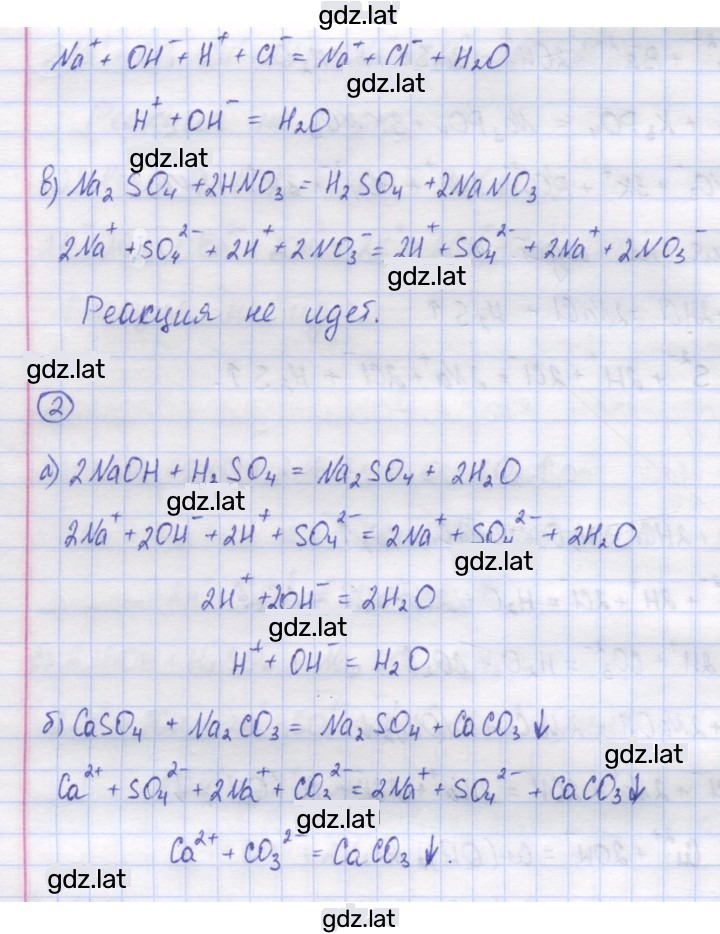 gdz.lat
Na⁺ + OH⁻ + H⁺ + Cl⁻ = Na⁺ + Cl⁻ + H₂O
gdz.lat
H⁺ + OH⁻ = H₂O
gdz.lat
в) Na₂SO₄ + 2HNO₃ = H₂SO₄ + 2NaNO₃
2Na⁺ + SO₄²⁻ + 2H⁺ + 2NO₃⁻ = 2H⁺ + SO₄²⁻ + 2Na⁺ + 2NO₃⁻
gdz.lat
Реакция не идет.
gdz.lat
2
а) 2NaOH + H₂SO₄ = Na₂SO₄ + 2H₂O
gdz.lat
2Na⁺ + 2OH⁻ + 2H⁺ + SO₄²⁻ = 2Na⁺ + SO₄²⁻ + 2H₂O
gdz.lat
2H⁺ + 2OH⁻ = 2H₂O
gdz.lat
H⁺ + OH⁻ = H₂O
б) CaSO₄ + Na₂CO₃ = Na₂SO₄ + CaCO₃↓
gdz.lat
Ca²⁺ + SO₄²⁻ + 2Na⁺ + CO₃²⁻ = 2Na⁺ + SO₄²⁻ + CaCO₃↓
gdz.lat
Ca²⁺ + CO₃²⁻ = CaCO₃↓.
gdz.lat
gdz.lat